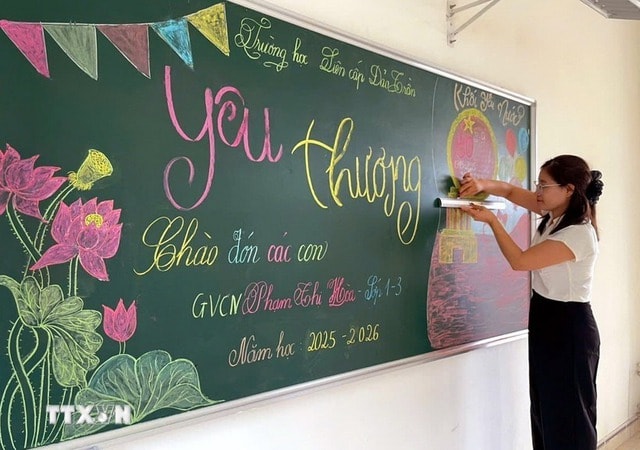 Trường học Liên cấp Đảo Trần
Yêu Nước
Yêu thương
Chào đón các con
GVCN Phạm Thị Hòa - Lớp 1-3
Năm học: 2025-2026
TTXVN